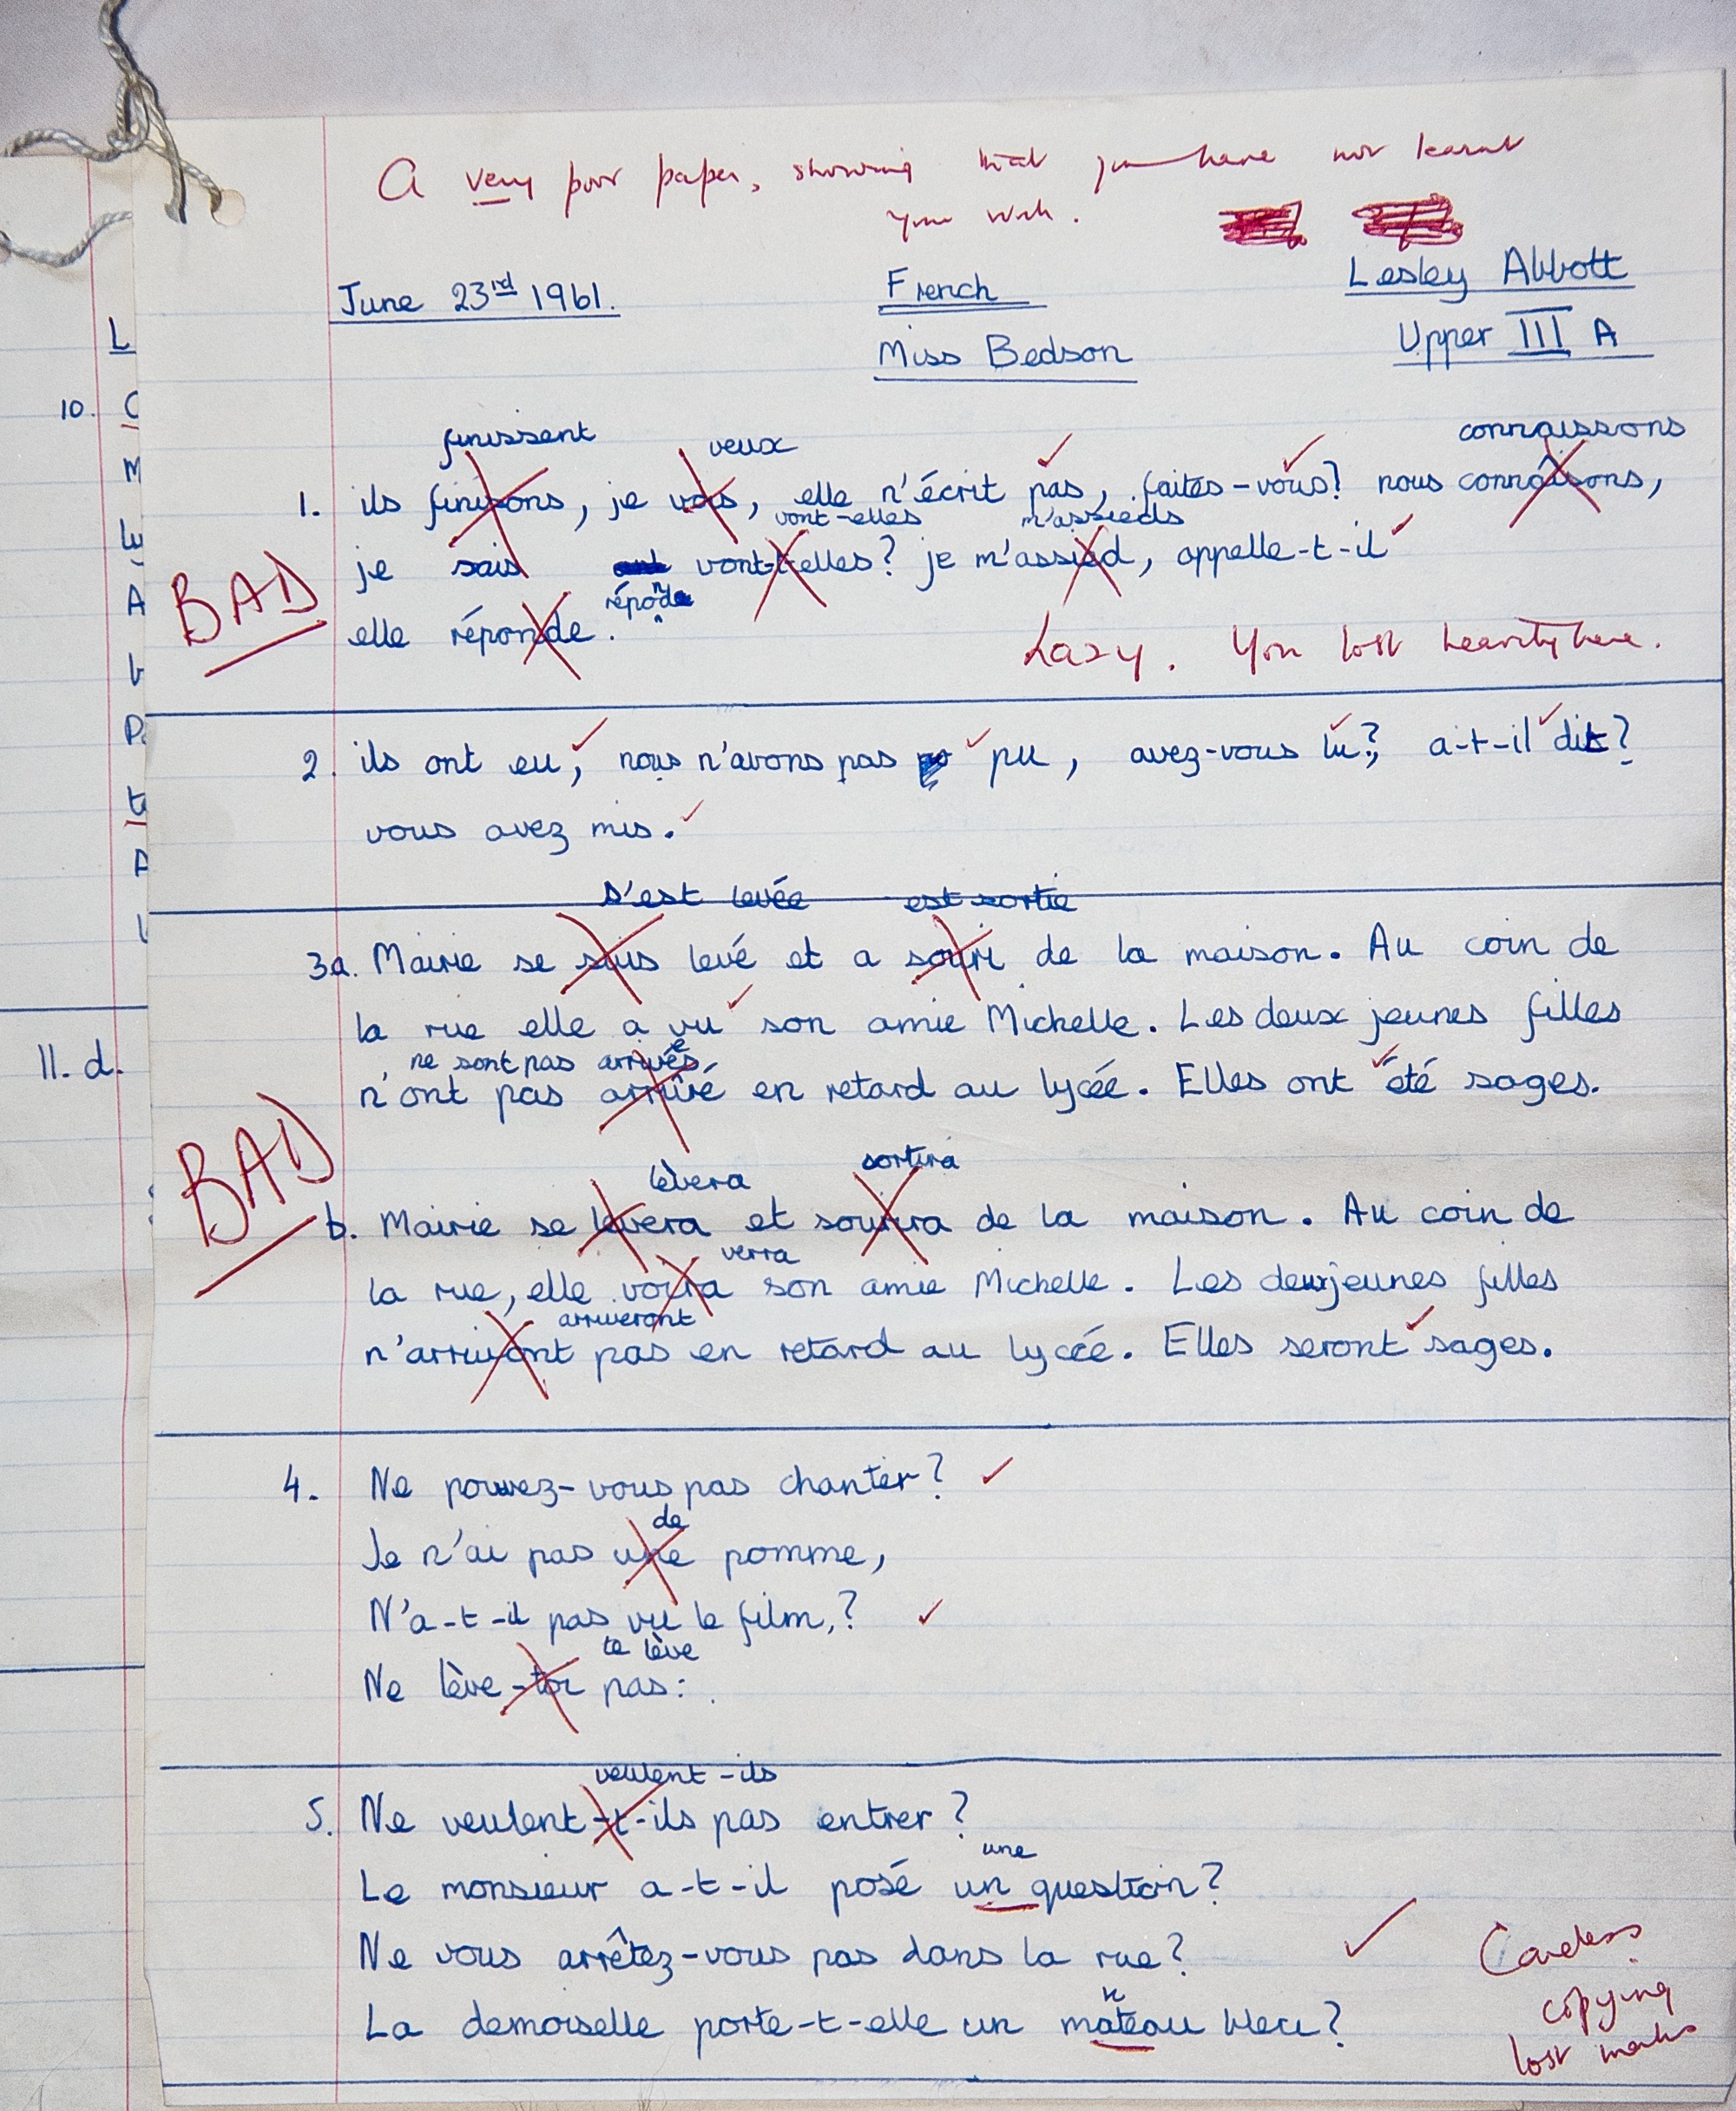 A very poor paper, showing that you have not learnt
your work.
June 23rd 1961.
French
Lesley Abbott
Miss Bedson
Upper III A
L
10. C
M
A
P
A
11. d.
finissent veux connaissons
1. ils finisons, je vois, elle n'écrit pas, faites-vous? nous connaîsons,
vont-elles m'assieds
je sais vont-t-elles? je m'assied, appelle-t-il
BAD
réponde
elle réponde.
Lazy. You lost heavily here.
2. ils ont eu, nous n'avons pas pu, avez-vous lu? a-t-il dit?
vous avez mis.
s'est levée est sortie
3a. Mairie se suis levé et a souri de la maison. Au coin de
la rue elle a vu son amie Michelle. Les deux jeunes filles
ne sont pas arrivées
n'ont pas arrivé en retard au lycée. Elles ont été sages.
BAD
lèvera sortira
b. Mairie se levera et sourira de la maison. Au coin de
verra
la rue, elle voira son amie Michelle. Les deux jeunes filles
arriveront
n'arrivont pas en retard au lycée. Elles seront sages.
4. Ne pouvez-vous pas chanter?
de
Je n'ai pas une pomme,
N'a-t-il pas vu le film,?
te lève
Ne lève-toi pas:
veulent-ils
5. Ne veulent-t-ils pas entrer?
une
Le monsieur a-t-il posé un question?
Ne vous arrêtez-vous pas dans la rue?
La demoiselle porte-t-elle un mateau bleu?
Careless
copying
lost marks